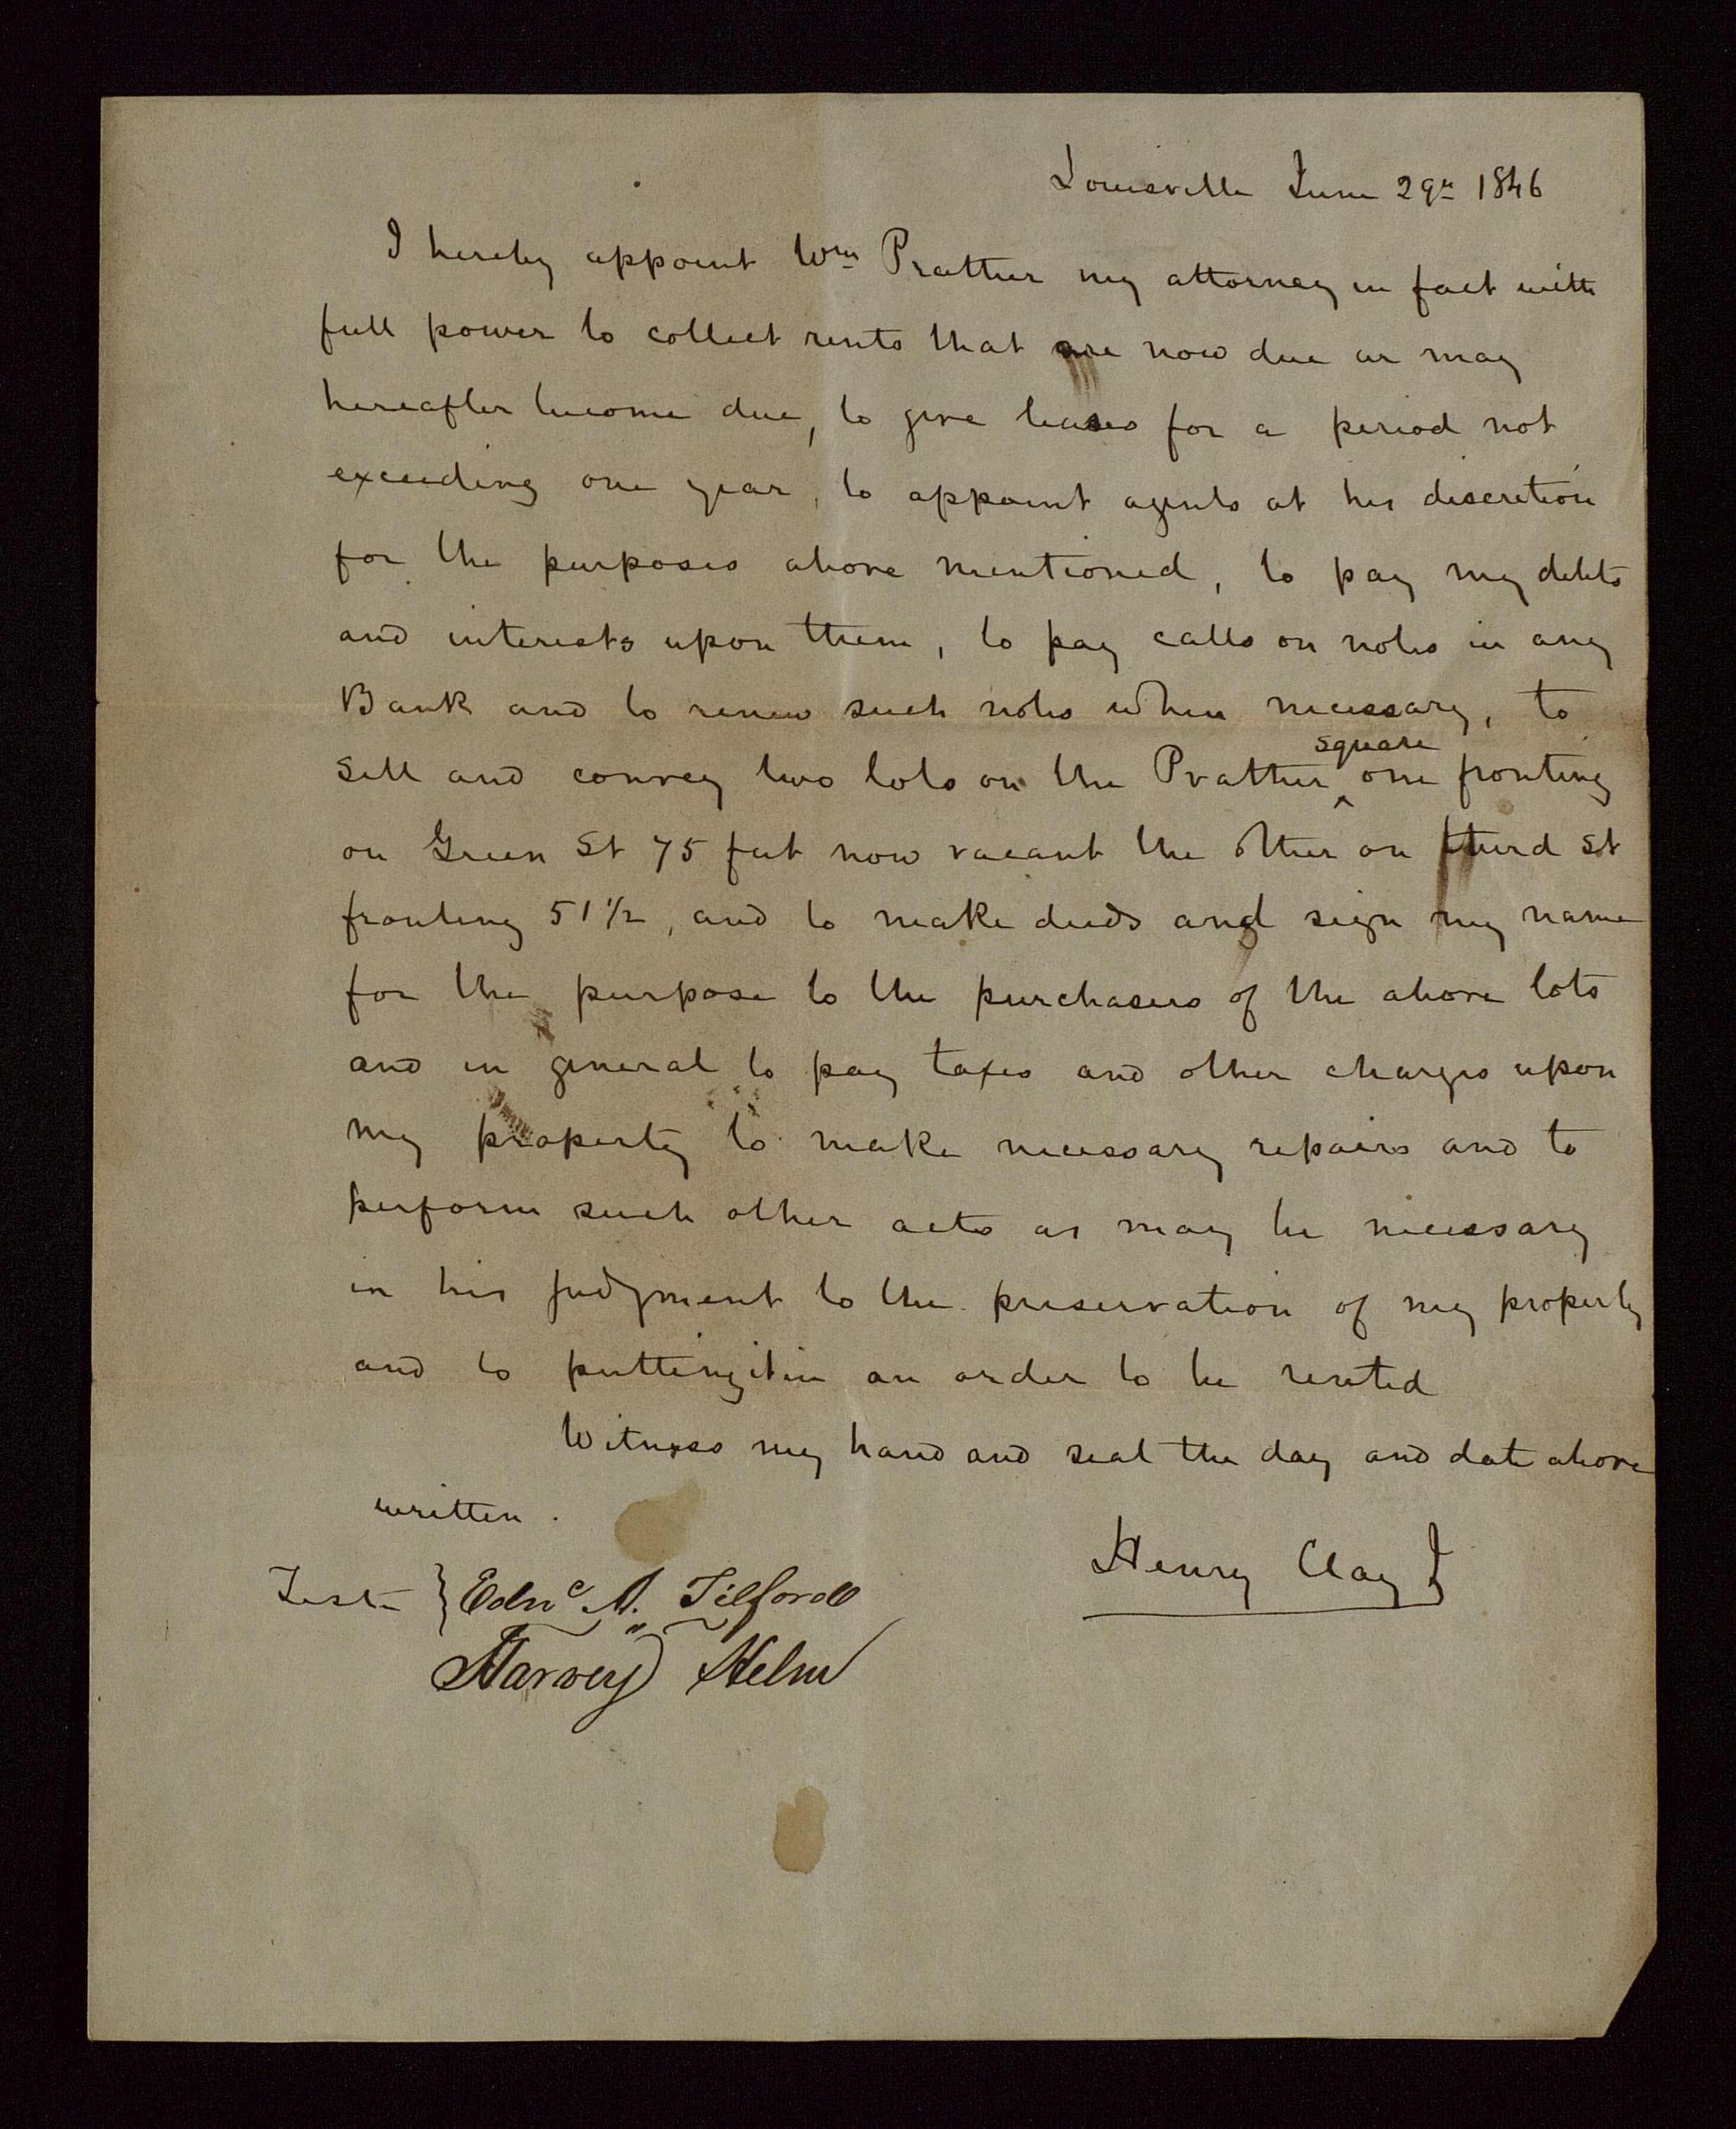 Louisville June 29th 1846
I hereby appoint Wm Prather my attorney in fact with
full power to collect rents that are now due or may
hereafter become due, to give leases for a period not
exceeding one year, to appoint agents at his discretion
for the purposes above mentioned, to pay my debts
and interests upon them, to pay calls on notes in any
Bank and to renew such notes when necessary, to
square
sell and convey two lots on the Prather ^ one fronting
on Green St 75 feet now vacant the other on third St
fronting 51 1/2, and to make deeds and sign my name
for the purpose to the purchasers of the above lots
and in general to pay taxes and other charges upon
my property to make necessary repairs and to
perform such other acts as may be necessary
in his judgment to the preservation of my property
and to putting it in an order to be rented
Witness my hand and seal the day and date above
written.
Henry Clay J
Test } Edw. M. Tilford
Harvey Helm